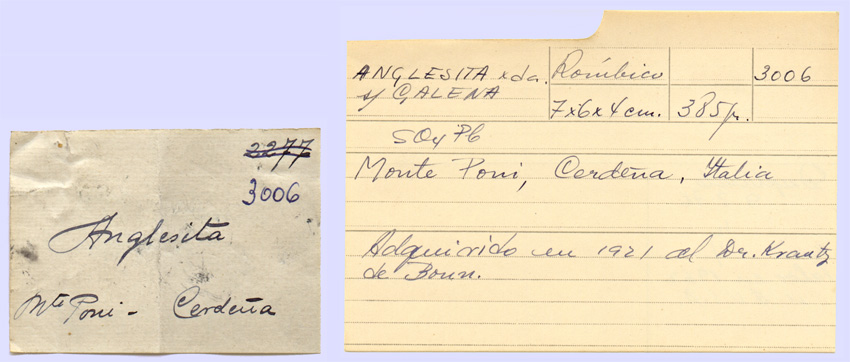 2277
3006
Anglesita
Mte Poni - Cerdeña
ANGLESITA xda. Rómbico 3006
y GALENA 7x6x4 cm. 385 gr.
SO4 Pb
Monte Poni, Cerdeña, Italia
Adquirido en 1921 al Dr. Krantz
de Bonn.